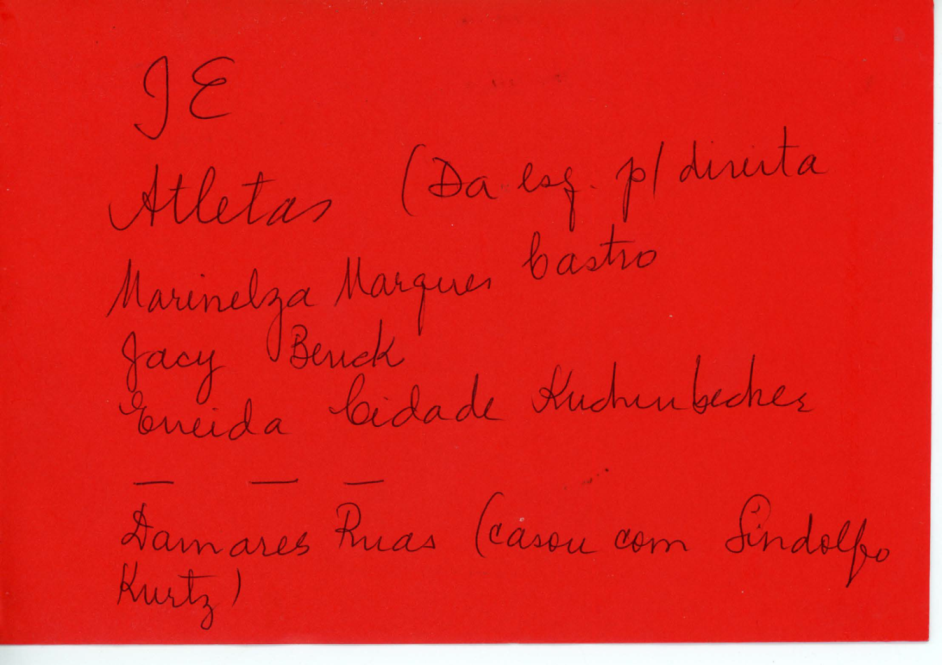 JE
Atletas (Da esq. p/ direita
Marinelza Marques Castro
Jacy Benck
Eneida Cidade Kuchenbecker
— — —
Damares Ruas (casou com Lindolfo
Kurtz)